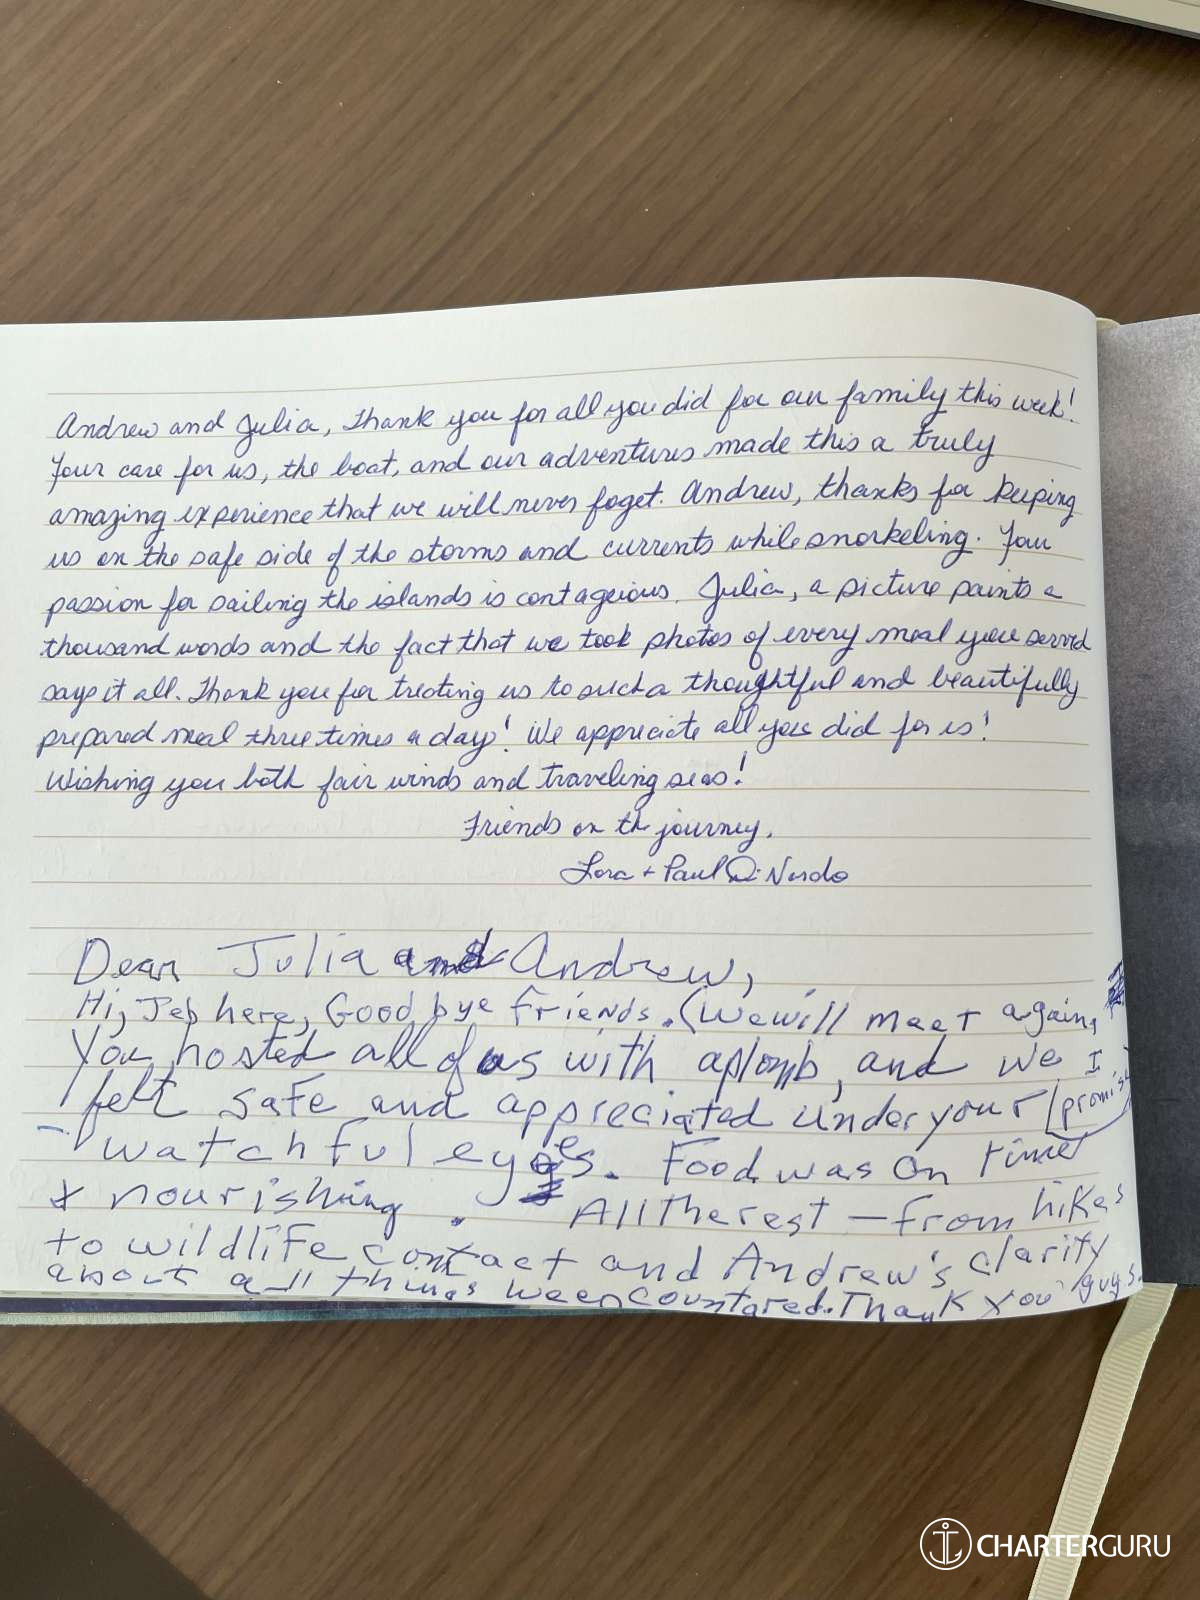 Andrew and Julia, Thank you for all you did for our family this week!
Your care for us, the boat, and our adventures made this a truly
amazing experience that we will never foget. Andrew, thanks for keeping
us on the safe side of the storms and currents while snorkeling. Your
passion for sailing the islands is contageious. Julia, a picture paints a
thousand words and the fact that we took photos of every meal you served
says it all. Thank you for treating us to such a thoughtful and beautifully
prepared meal three times a day! We appreciate all you did for us!
Wishing you both fair winds and traveling seas!
Friends on the journey,
Lora + Paul Di Nardo
Dear Julia and Andrew,
Hi, Jeb here, Good bye friends. (We will meet again,
You hosted all of us with aplomb, and we I
felt safe and appreciated under your promise)
watchful eyes. Food was on time
& nourishing. All the rest – from hikes
to wildlife contact and Andrew's clarity
about all things we encountared. Thank you guys.
CHARTERGURU